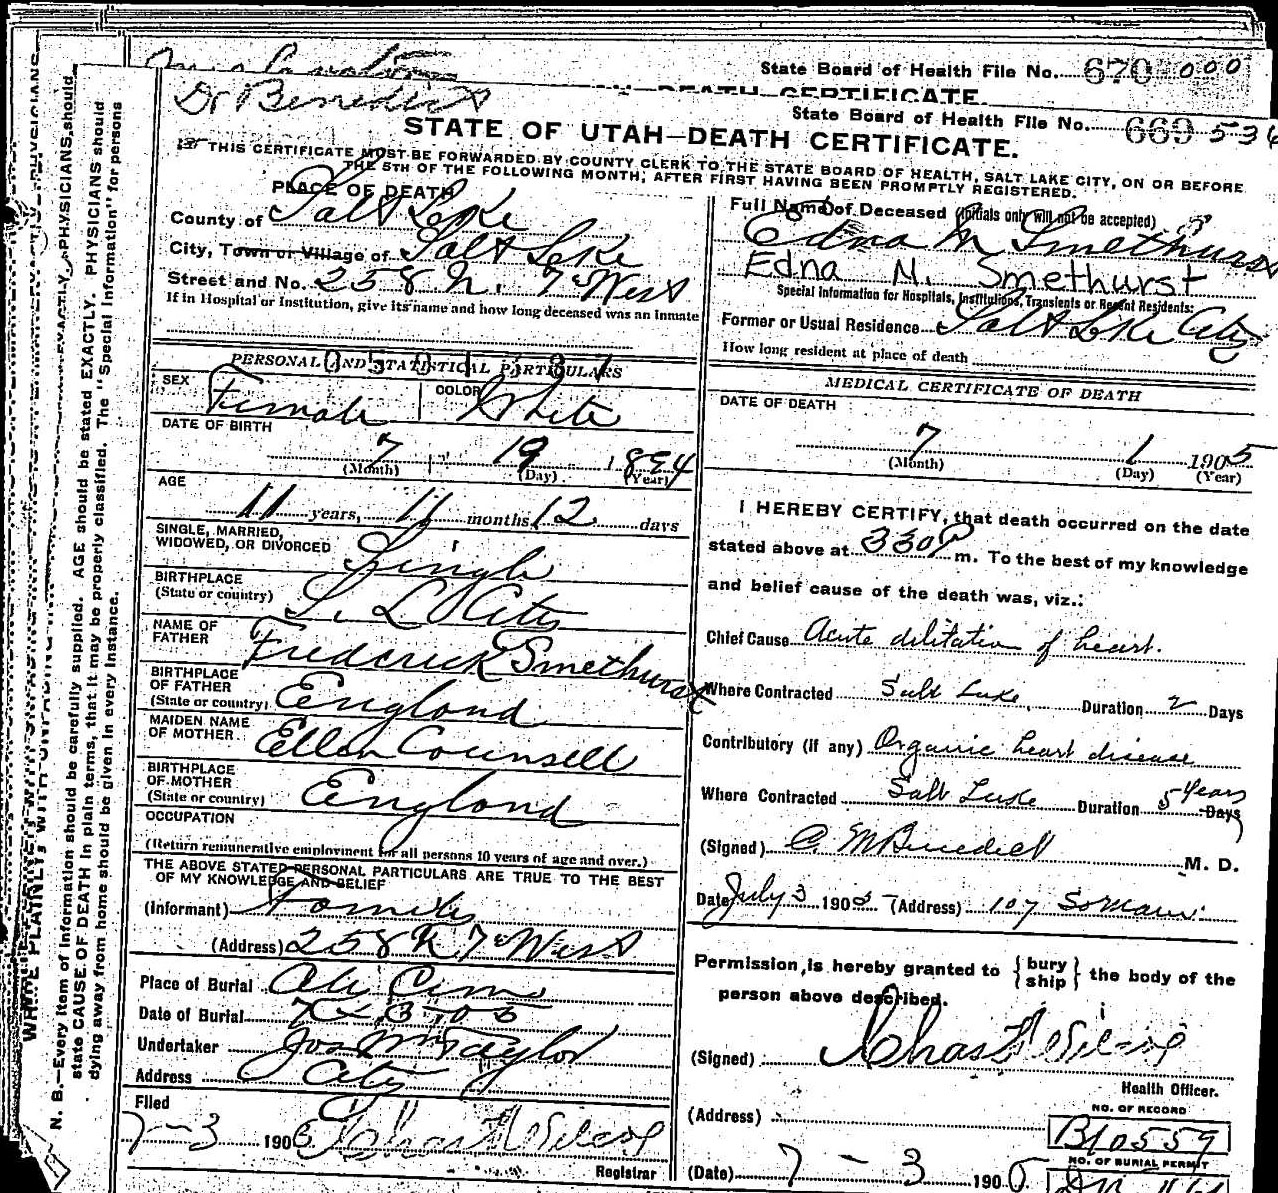 State Board of Health File No. 670 000
DEATH CERTIFICATE.
Dr Benedict
State Board of Health File No. 669 536
STATE OF UTAH—DEATH CERTIFICATE.
THIS CERTIFICATE MUST BE FORWARDED BY COUNTY CLERK TO THE STATE BOARD OF HEALTH, SALT LAKE CITY, ON OR BEFORE
THE 5TH OF THE FOLLOWING MONTH, AFTER FIRST HAVING BEEN PROMPTLY REGISTERED.
PLACE OF DEATH
County of Salt Lake
City, Town or Village of Salt Lake
Street and No. 258 N. 7th West
If in Hospital or Institution, give its name and how long deceased was an inmate
PERSONAL AND STATISTICAL PARTICULARS
SEX Female COLOR White
DATE OF BIRTH
7 19 1894
(Month) (Day) (Year)
AGE
11 years, 11 months 12 days
SINGLE, MARRIED,
WIDOWED, OR DIVORCED Single
BIRTHPLACE
(State or country) S. L City
NAME OF
FATHER Frederick Smethurst
BIRTHPLACE
OF FATHER
(State or country) England
MAIDEN NAME
OF MOTHER Ellen Counsell
BIRTHPLACE
OF MOTHER
(State or country) England
OCCUPATION
(Return remunerative employment for all persons 10 years of age and over.)
THE ABOVE STATED PERSONAL PARTICULARS ARE TRUE TO THE BEST
OF MY KNOWLEDGE AND BELIEF
(Informant) Family
(Address) 258 N 7th West
Place of Burial City Cem
Date of Burial 7 3 05
Undertaker Jos Wm Taylor
Address City
Filed
7-3 1905 Chas F Wilcox
Registrar
Full Name of Deceased (Initials only will not be accepted)
Edna M Smethurst
Edna M. Smethurst
Special Information for Hospitals, Institutions, Transients or Recent Residents:
Former or Usual Residence Salt Lake City
How long resident at place of death
MEDICAL CERTIFICATE OF DEATH
DATE OF DEATH
7 1 1905
(Month) (Day) (Year)
I HEREBY CERTIFY, that death occurred on the date
stated above at 330 P m. To the best of my knowledge
and belief cause of the death was, viz.:
Chief Cause Acute dilitation of heart.
Where Contracted Salt Lake, Duration 2 Days
Contributory (if any) Organic heart disease
Where Contracted Salt Lake Duration 5 Years Days
(Signed) C. M Benedict M. D.
Date July 3 1905 (Address) 107 So Main
Permission is hereby granted to {bury ship} the body of the
person above described.
(Signed) Chas F Wilcox
Health Officer.
(Address)
NO. OF RECORD
B10559
NO. OF BURIAL PERMIT
(Date) 7-3 1905
N. B.—Every item of information should be carefully supplied. AGE should be stated EXACTLY. PHYSICIANS should
state CAUSE OF DEATH in plain terms, that it may be properly classified. The "Special Information" for persons
dying away from home should be given in every instance.